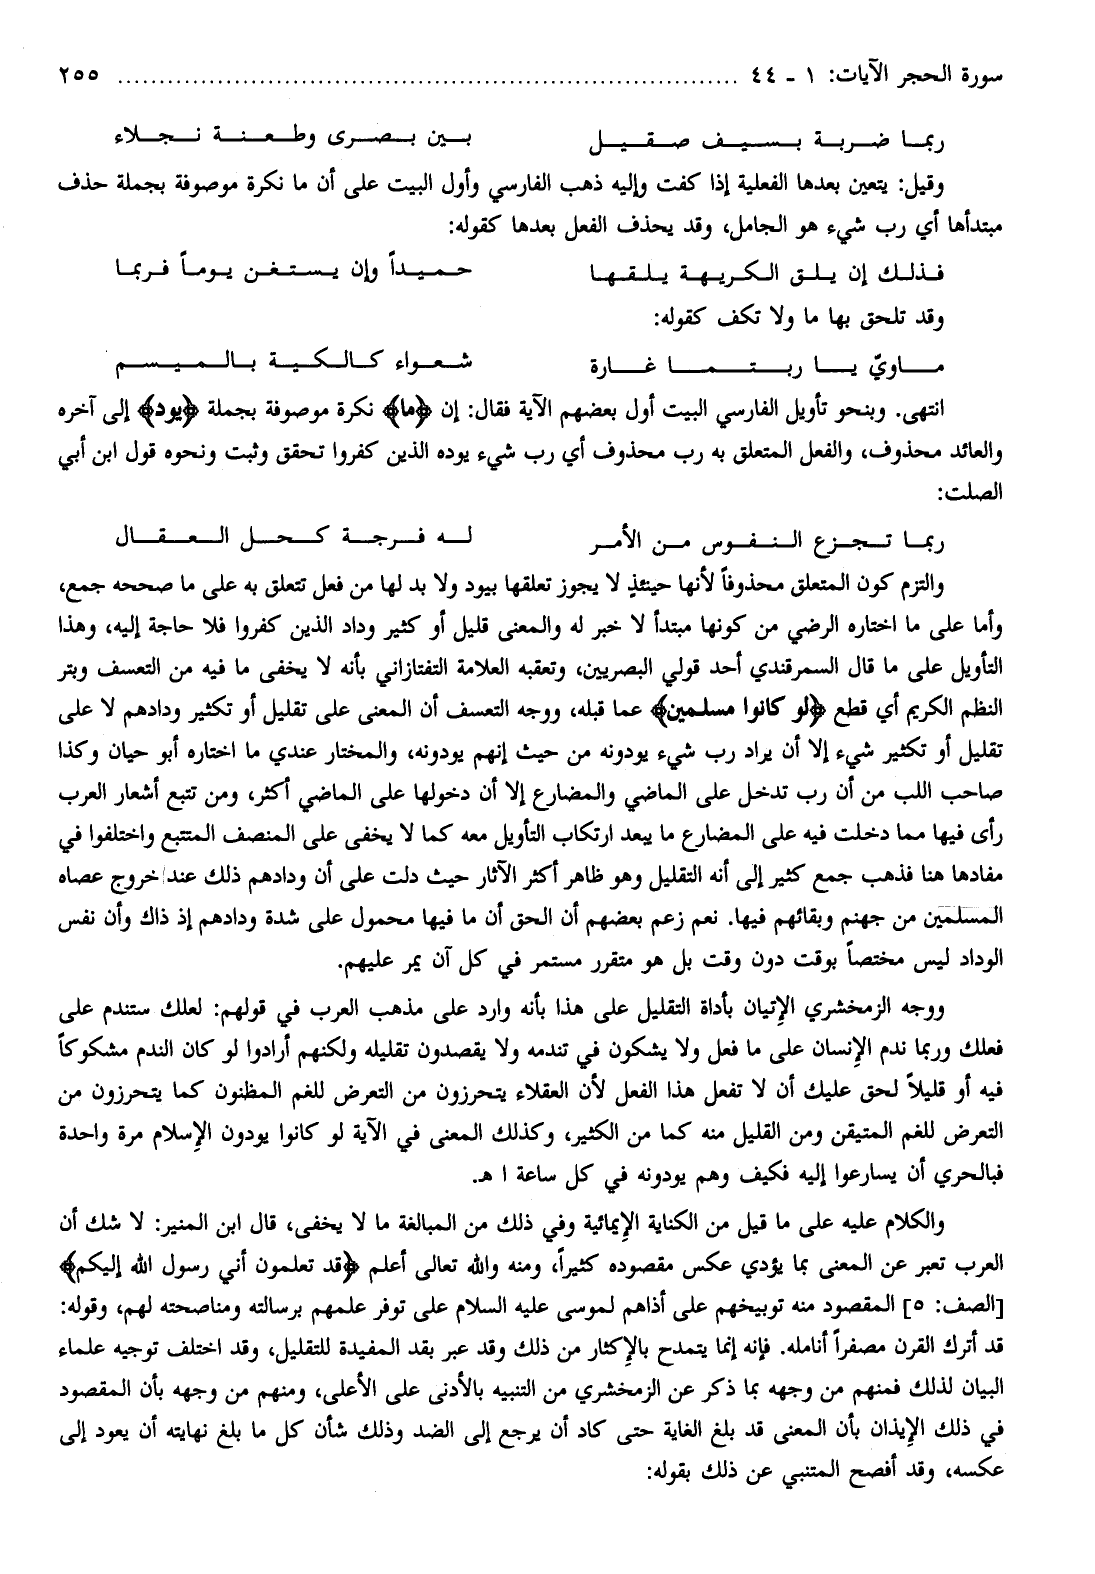 سورة الحجر الآيات: ١ ـ ٤٤ ........................................................................... ٢٥٥
ربما ضربة بسيف صقيل بين بصرى وطعنة نجلاء
وقيل: يتعين بعدها الفعلية إذا كفت وإليه ذهب الفارسي وأول البيت على أن ما نكرة موصوفة بجملة حذف
مبتدأها أي رب شيء هو الجامل، وقد يحذف الفعل بعدها كقوله:
فذلك إن يلق الكريهة يلقها حميداً وإن يستغن يوماً فربما
وقد تلحق بها ما ولا تكف كقوله:
ماويّ يا ربتما غارة شعواء كالكية بالميسم
انتهى. وبنحو تأويل الفارسي البيت أول بعضهم الآية فقال: إن ﴿ما﴾ نكرة موصوفة بجملة ﴿يود﴾ إلى آخره
والعائد محذوف، والفعل المتعلق به رب محذوف أي رب شيء يوده الذين كفروا تحقق وثبت ونحوه قول ابن أبي
الصلت:
ربما تجزع النفوس من الأمر له فرجة كحل العقال
والتزم كون المتعلق محذوفاً لأنها حينئذٍ لا يجوز تعلقها بيود ولا بد لها من فعل تتعلق به على ما صححه جمع،
وأما على ما اختاره الرضي من كونها مبتدأ لا خبر له والمعنى قليل أو كثير وداد الذين كفروا فلا حاجة إليه، وهذا
التأويل على ما قال السمرقندي أحد قولي البصريين، وتعقبه العلامة التفتازاني بأنه لا يخفى ما فيه من التعسف وبتر
النظم الكريم أي قطع ﴿لو كانوا مسلمين﴾ عما قبله، ووجه التعسف أن المعنى على تقليل أو تكثير ودادهم لا على
تقليل أو تكثير شيء إلا أن يراد رب شيء يودونه من حيث إنهم يودونه، والمختار عندي ما اختاره أبو حيان وكذا
صاحب اللب من أن رب تدخل على الماضي والمضارع إلا أن دخولها على الماضي أكثر، ومن تتبع أشعار العرب
رأى فيها مما دخلت فيه على المضارع ما يبعد ارتكاب التأويل معه كما لا يخفى على المنصف المتتبع واختلفوا في
مفادها هنا فذهب جمع كثير إلى أنه التقليل وهو ظاهر أكثر الآثار حيث دلت على أن ودادهم ذلك عند خروج عصاه
المسلمين من جهنم وبقائهم فيها. نعم زعم بعضهم أن الحق أن ما فيها محمول على شدة ودادهم إذ ذاك وأن نفس
الوداد ليس مختصاً بوقت دون وقت بل هو متقرر مستمر في كل آن يمر عليهم.
ووجه الزمخشري الإتيان بأداة التقليل على هذا بأنه وارد على مذهب العرب في قولهم: لعلك ستندم على
فعلك وربما ندم الإنسان على ما فعل ولا يشكون في تندمه ولا يقصدون تقليله ولكنهم أرادوا لو كان الندم مشكوكاً
فيه أو قليلاً لحق عليك أن لا تفعل هذا الفعل لأن العقلاء يتحرزون من التعرض للغم المظنون كما يتحرزون من
التعرض للغم المتيقن ومن القليل منه كما من الكثير، وكذلك المعنى في الآية لو كانوا يودون الإسلام مرة واحدة
فبالحري أن يسارعوا إليه فكيف وهم يودونه في كل ساعة ا هـ.
والكلام عليه على ما قيل من الكناية الإيمائية وفي ذلك من المبالغة ما لا يخفى، قال ابن المنير: لا شك أن
العرب تعبر عن المعنى بما يؤدي عكس مقصوده كثيراً، ومنه والله تعالى أعلم ﴿قد تعلمون أني رسول الله إليكم﴾
[الصف: ٥] المقصود منه توبيخهم على أذاهم لموسى عليه السلام على توفر علمهم برسالته ومناصحته لهم، وقوله:
قد أترك القرن مصفراً أنامله. فإنه إنما يتمدح بالإكثار من ذلك وقد عبر بقد المفيدة للتقليل، وقد اختلف توجيه علماء
البيان لذلك فمنهم من وجهه بما ذكر عن الزمخشري من التنبيه بالأدنى على الأعلى، ومنهم من وجهه بأن المقصود
في ذلك الإيذان بأن المعنى قد بلغ الغاية حتى كاد أن يرجع إلى الضد وذلك شأن كل ما بلغ نهايته أن يعود إلى
عكسه، وقد أفصح المتنبي عن ذلك بقوله: